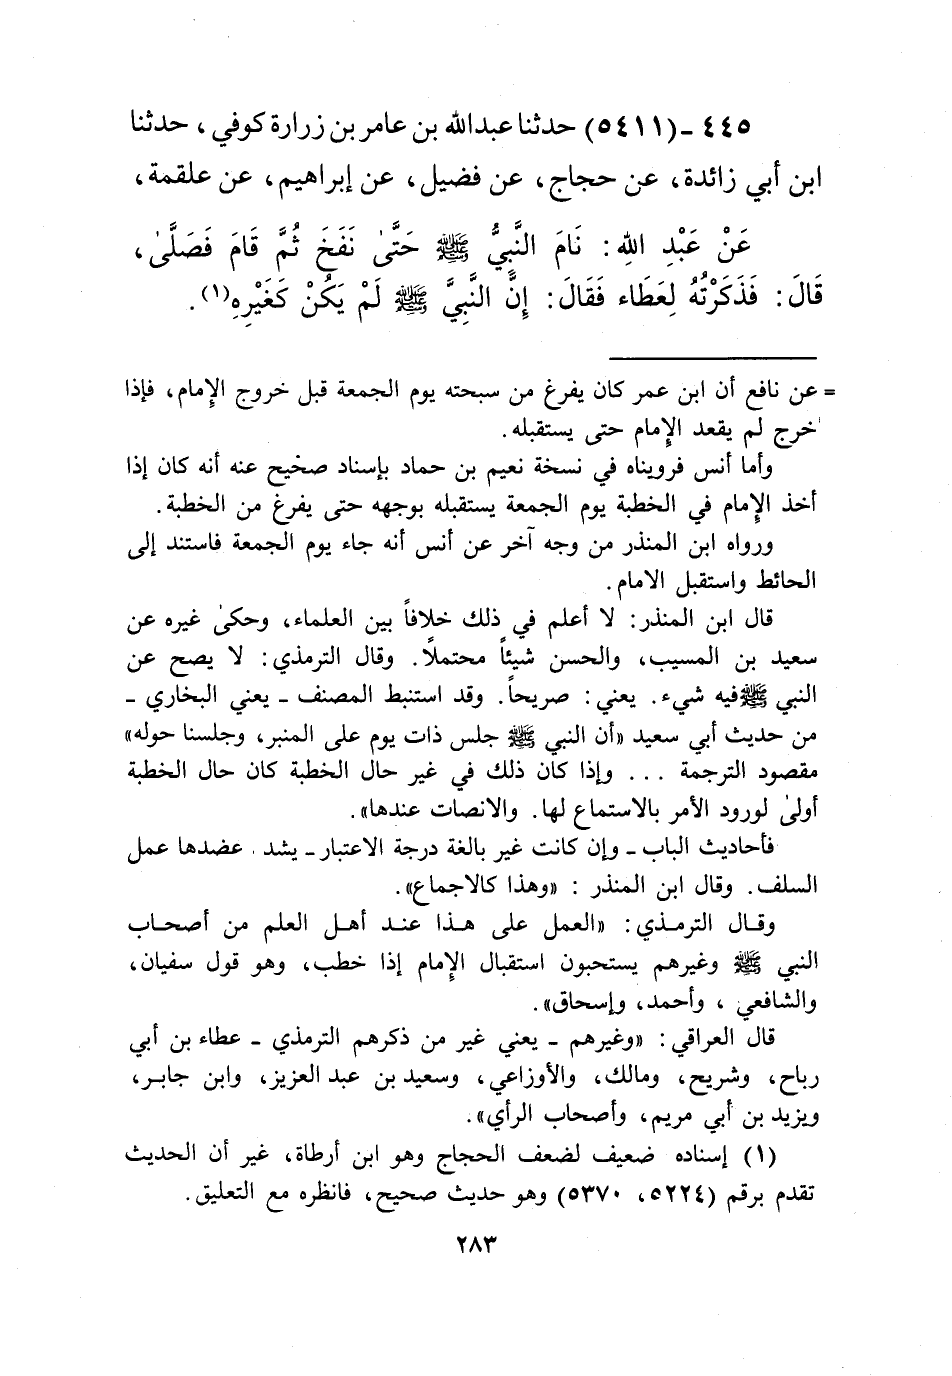 ٤٤٥ ـ (٥٤١١) حدثنا عبدالله بن عامر بن زرارة كوفي ، حدثنا
ابن أبي زائدة، عن حجاج، عن فضيل، عن إبراهيم، عن علقمة،
عَنْ عَبْدِ اللهِ: نَامَ النَّبِيُّ ﷺ حَتَّىٰ نَفَخَ ثُمَّ قَامَ فَصَلَّىٰ،
قَالَ: فَذَكَرْتُهُ لِعَطَاء فَقَالَ: إِنَّ النَّبِيَّ ﷺ لَمْ يَكُنْ كَغَيْرِهِ(١).
= عن نافع أن ابن عمر كان يفرغ من سبحته يوم الجمعة قبل خروج الإمام، فإذا
خرج لم يقعد الإمام حتى يستقبله.
وأما أنس فرويناه في نسخة نعيم بن حماد بإسناد صحيح عنه أنه كان إذا
أخذ الإمام في الخطبة يوم الجمعة يستقبله بوجهه حتى يفرغ من الخطبة.
ورواه ابن المنذر من وجه آخر عن أنس أنه جاء يوم الجمعة فاستند إلى
الحائط واستقبل الامام.
قال ابن المنذر: لا أعلم في ذلك خلافاً بين العلماء، وحكىٰ غيره عن
سعيد بن المسيب، والحسن شيئاً محتملاً. وقال الترمذي: لا يصح عن
النبي ﷺ فيه شيء. يعني: صريحاً. وقد استنبط المصنف ـ يعني البخاري ـ
من حديث أبي سعيد «أن النبي ﷺ جلس ذات يوم على المنبر، وجلسنا حوله»
مقصود الترجمة ... وإذا كان ذلك في غير حال الخطبة كان حال الخطبة
أولىٰ لورود الأمر بالاستماع لها. والانصات عندها».
فأحاديث الباب ـ وإن كانت غير بالغة درجة الاعتبار ـ يشد عضدها عمل
السلف. وقال ابن المنذر : «وهذا كالاجماع».
وقال الترمذي: «العمل على هذا عند أهل العلم من أصحاب
النبي ﷺ وغيرهم يستحبون استقبال الإمام إذا خطب، وهو قول سفيان،
والشافعي ، وأحمد، وإسحاق».
قال العراقي: «وغيرهم ـ يعني غير من ذكرهم الترمذي ـ عطاء بن أبي
رباح، وشريح، ومالك، والأوزاعي، وسعيد بن عبد العزيز، وابن جابر،
ويزيد بن أبي مريم، وأصحاب الرأي».
(١) إسناده ضعيف لضعف الحجاج وهو ابن أرطاة، غير أن الحديث
تقدم برقم (٥٢٢٤، ٥٣٧٠) وهو حديث صحيح، فانظره مع التعليق.
٢٨٣